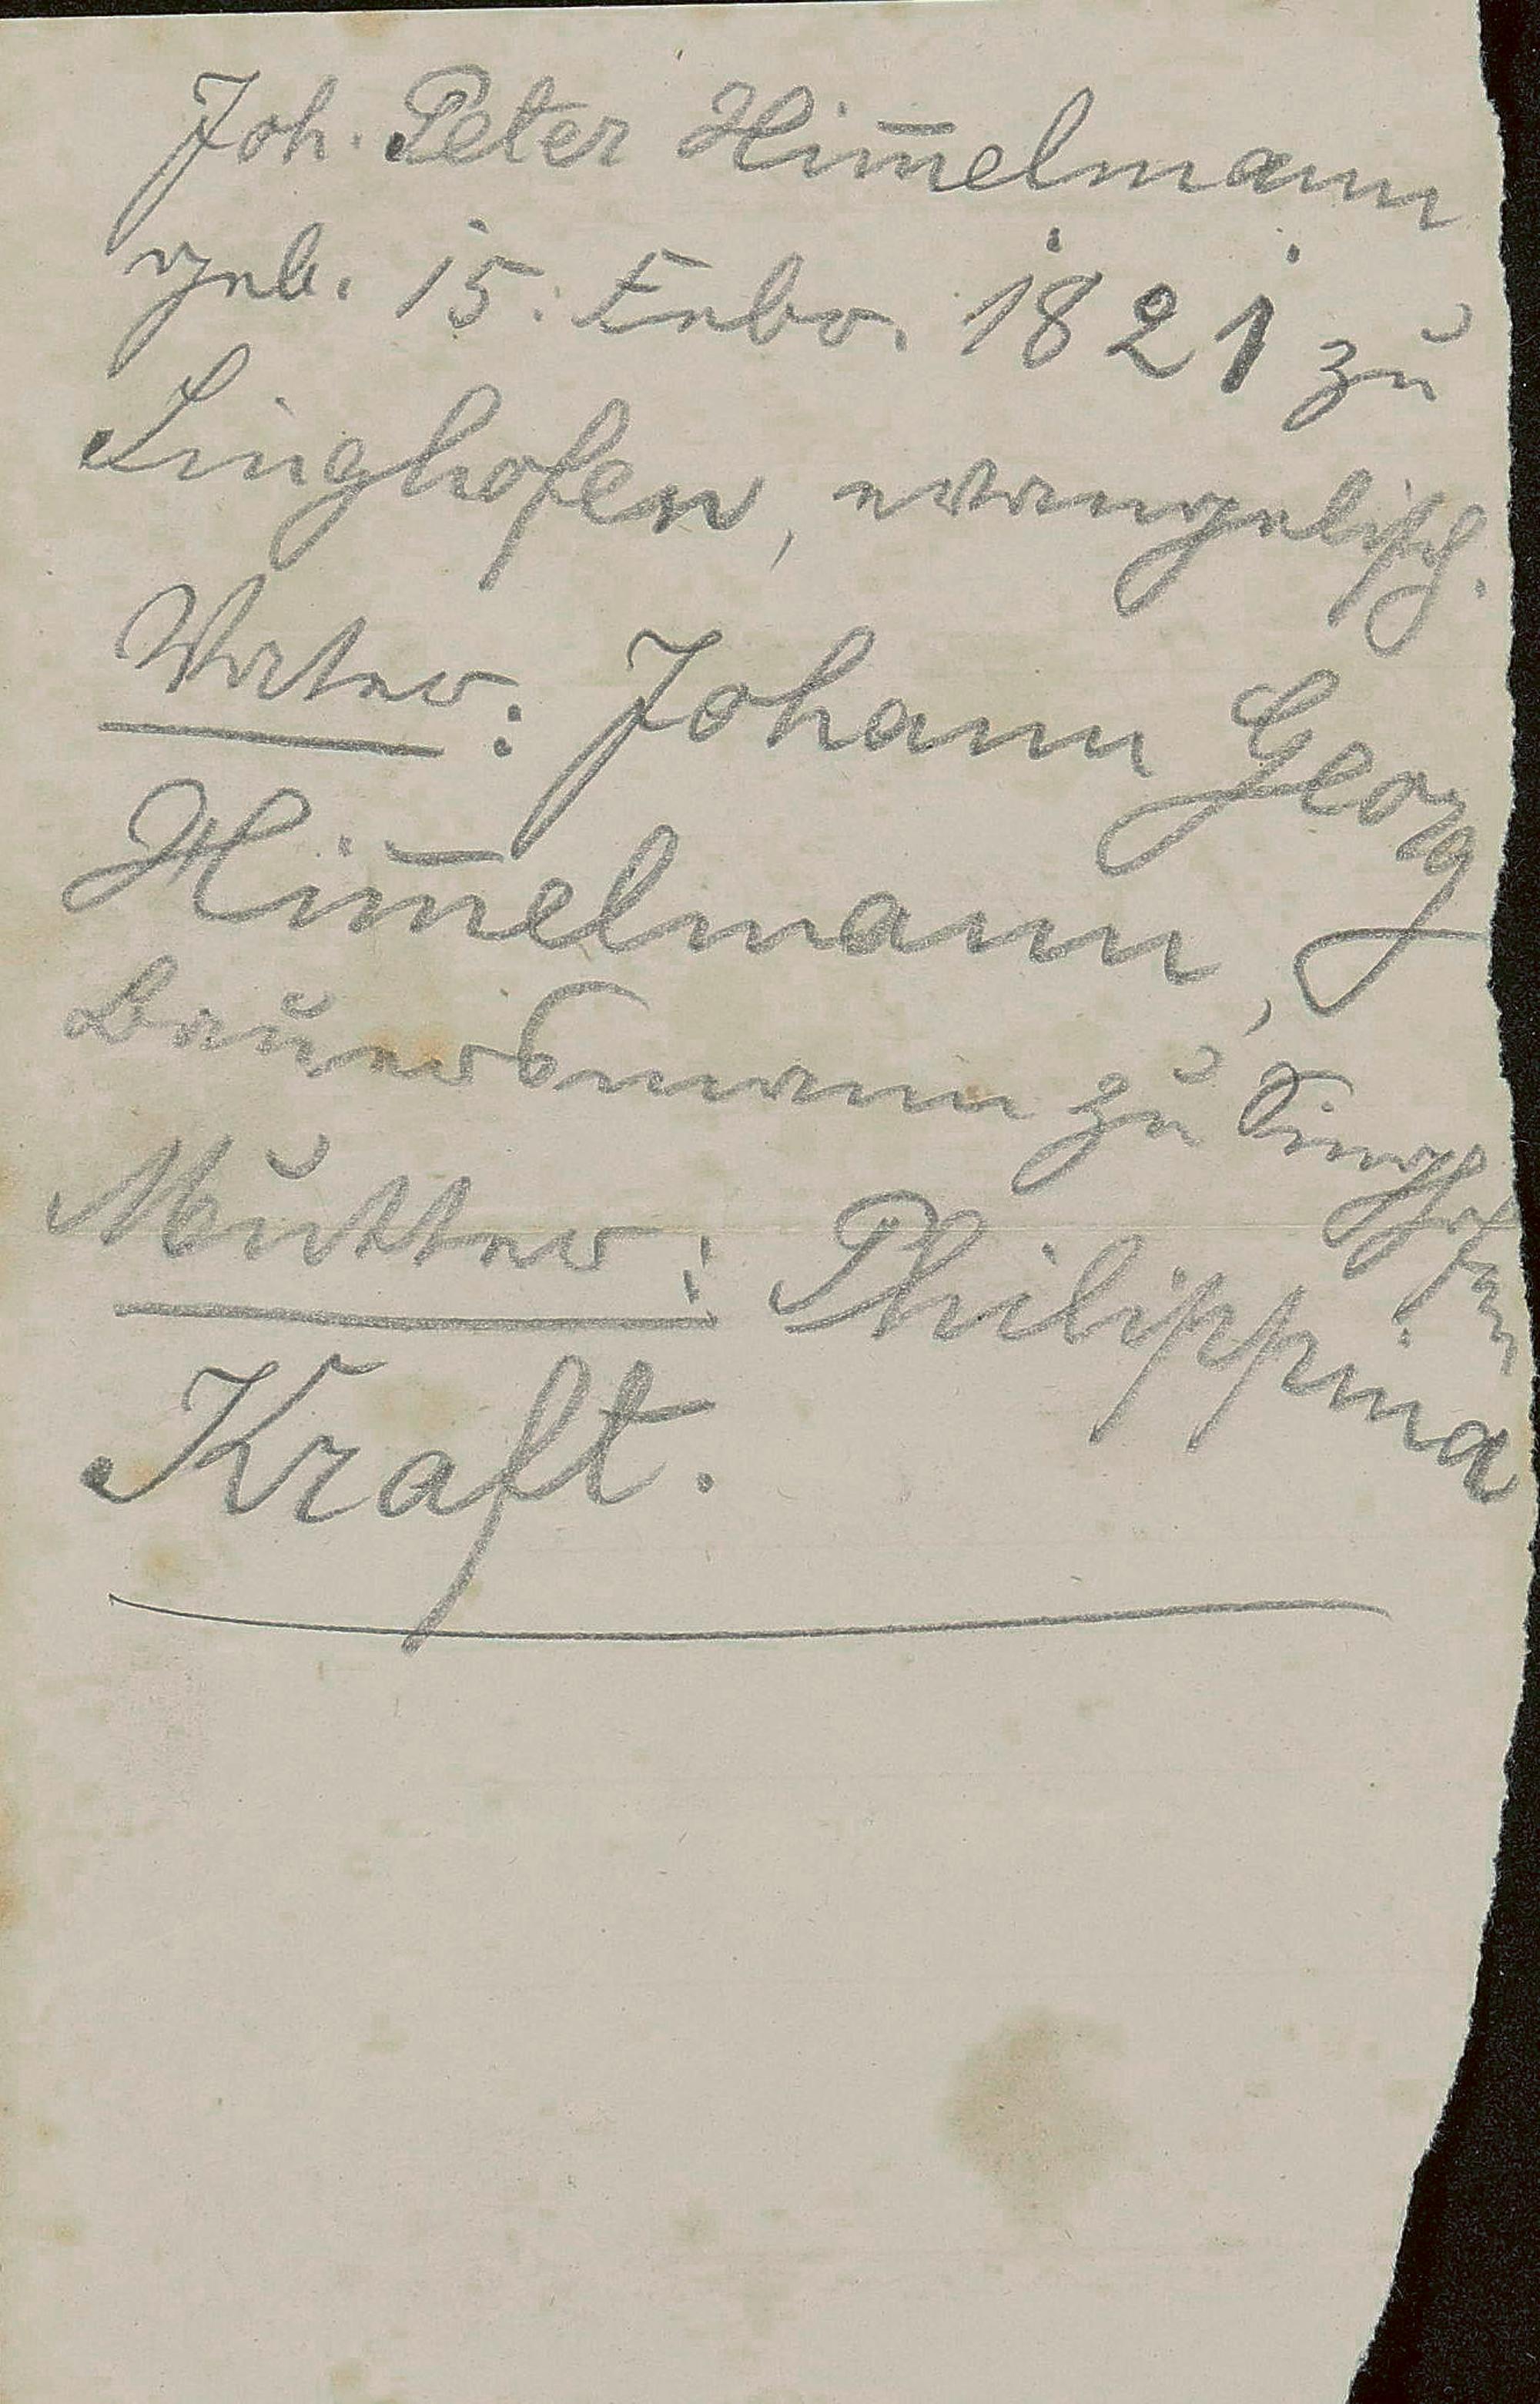 Joh. Peter Him̄elmann
geb. 15. Febr. 1821 zu
Singhofen, evangelisch.
Vater: Johann Georg
Him̄elmann,
Bauersmann zu Singhofen.
Mutter: Philippina
Kraft.